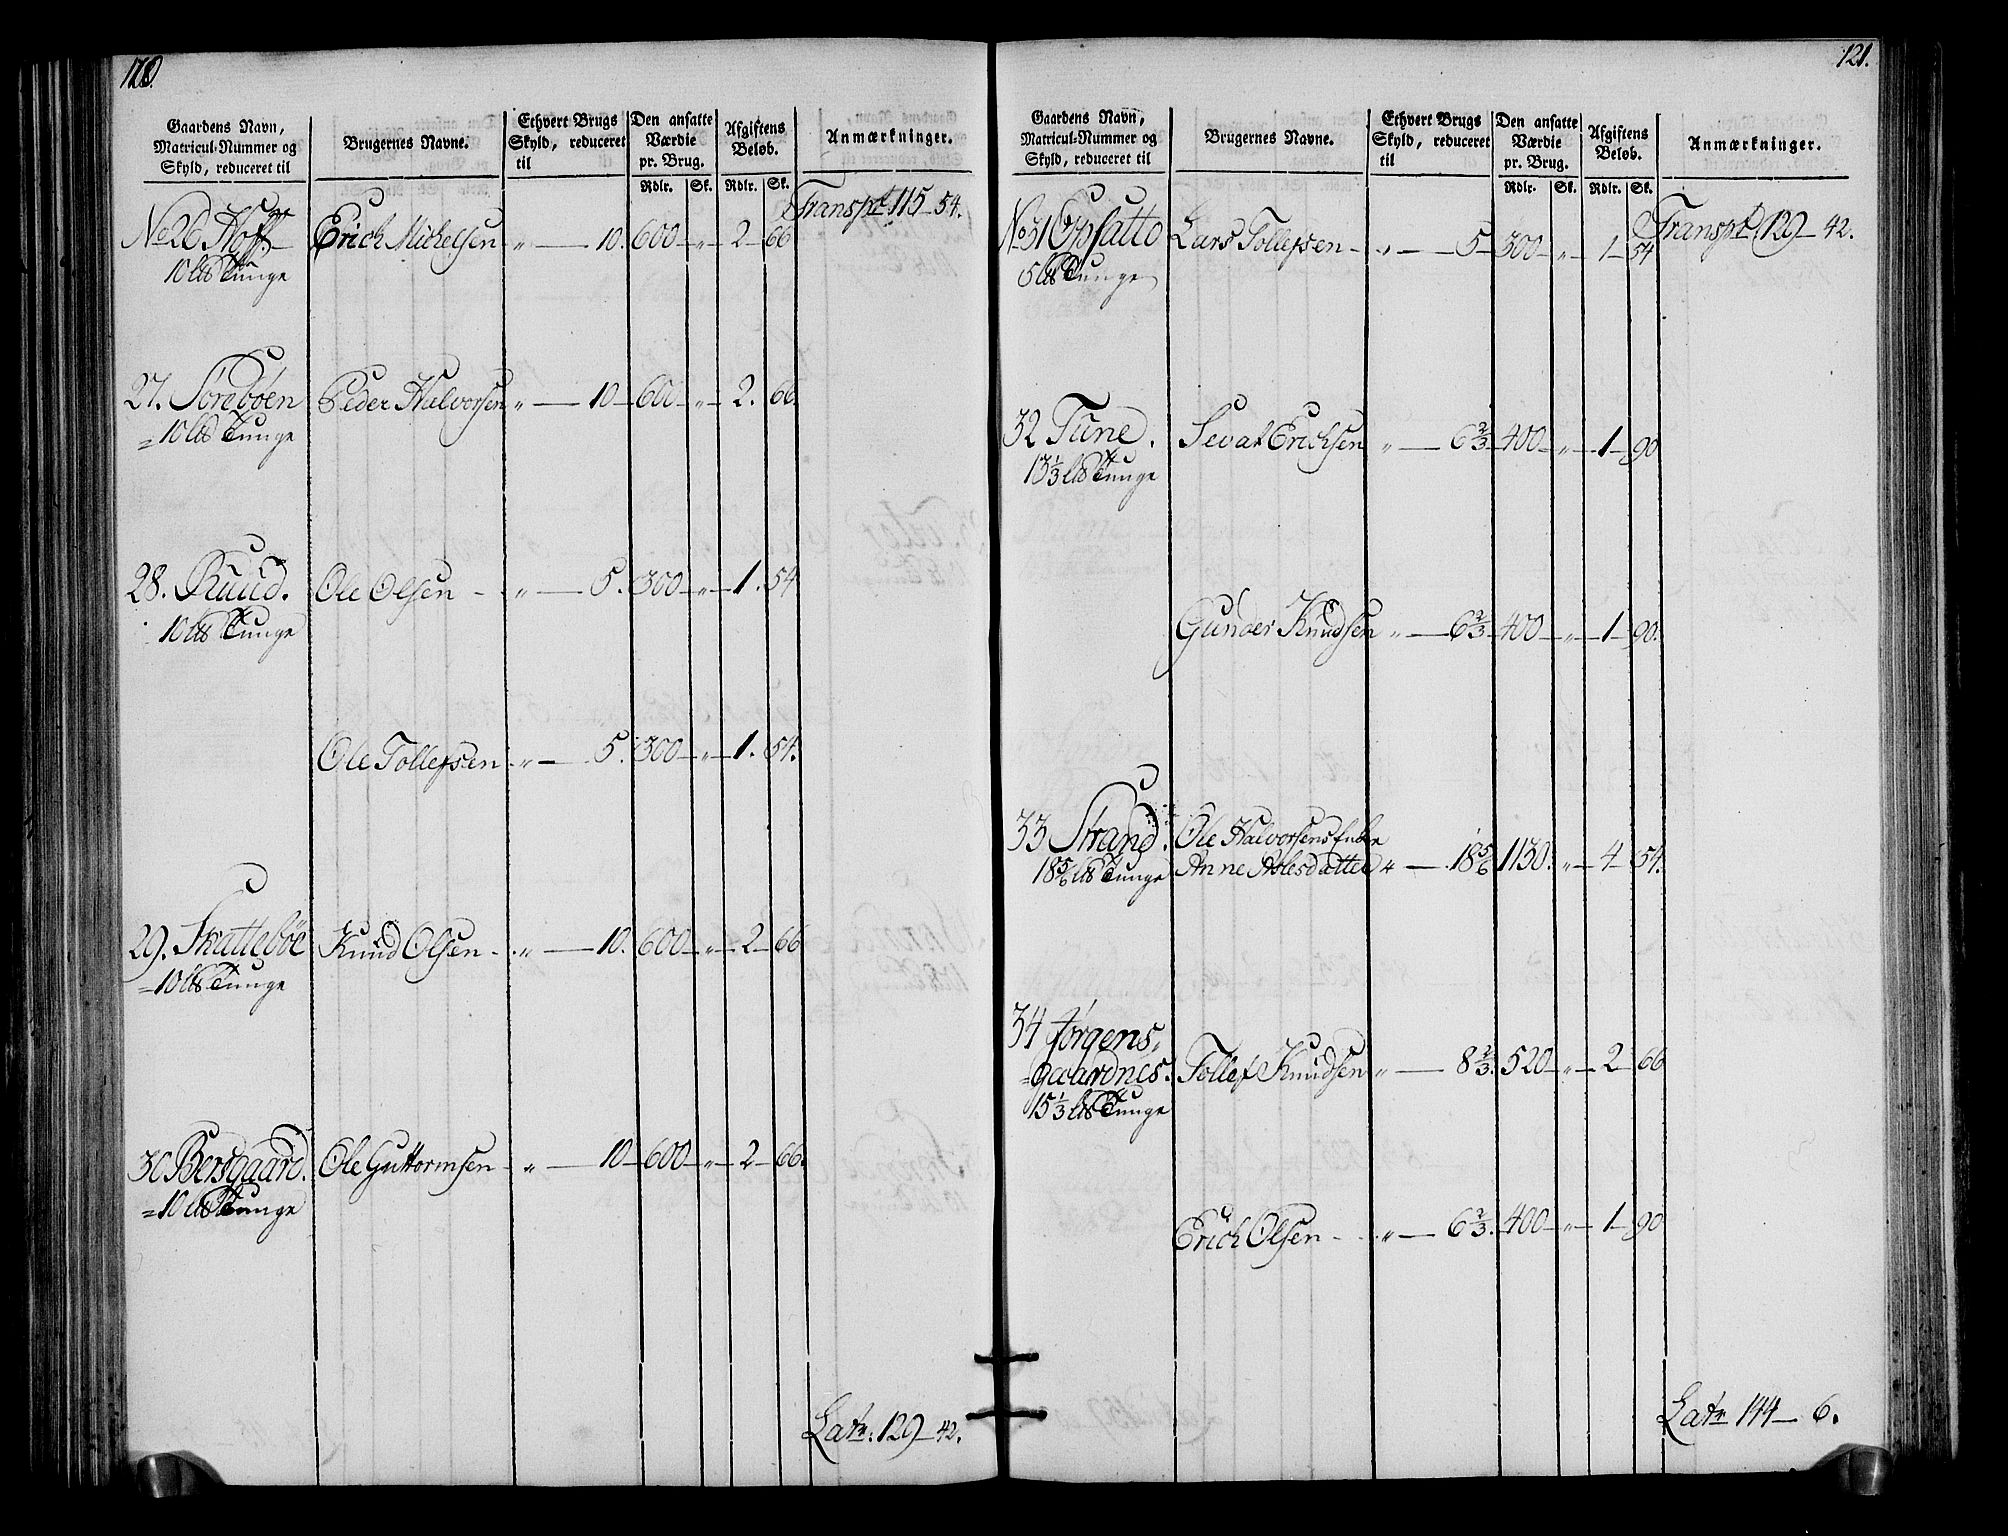 120.
Gaardens Navn, Matricul-Nummer og Skyld, reduceret til
Brugernes Navne.
Ethvert Brugs Skyld, reduceret til
Den ansatte Værdie pr. Brug.
Afgiftens Beløb.
Anmærkninger.
Rdlr. Sk. Rdlr. Sk.
Transpt 115 - 54.
No 26 Hoff. Erich Michelsen „ — 10. 600 — „ — 2 — 66
10 L℔ Tunge
27. Sørebøen Peder Halvorsen „ — 10 — 600 — „ — 2. 66.
= 10 L℔ Tunge
28. Ruud. Ole Olsen - „ — 5. 300 — „ — 1. 54
10 L℔ Tunge
Ole Tollefsen „ — 5. 300 — „ — 1. 54.
29. Skattebøe Knud Olsen - „ — 10. 600 — „ — 2 — 66
= 10 L℔ Tunge
30 Bersgaard. Ole Guttormsen - „ — 10 — 600 — „ — 2 — 66.
= 10 L℔ Tunge
Latr: 129 — 42.
121.
Gaardens Navn, Matricul-Nummer og Skyld, reduceret til
Brugernes Navne.
Ethvert Brugs Skyld, reduceret til
Den ansatte Værdie pr. Brug.
Afgiftens Beløb.
Anmærkninger.
Rdlr. Sk. Rdlr. Sk.
Transpt 129 — 42.
No 31 Opsatto Lars Tollefsen - „ — 5 — 300 — „ — 1 — 54
5 L℔ Tunge
32 Tune. Sevat Erichsen „ — 6 2/3 — 400 — „ — 1 — 90
13 1/3 L℔ Tunge
Gunder Knudsen „ — 6 2/3 — 400 — „ — 1 — 90.
33 Strand. Ole Halvorsens Enke
18 5/6 L℔ Tunge Anne Aslesdatter „ — 18 5/6 1130. „ — 4 — 54.
34 Jørgens,
=gaardnes. Tollef Knudsen „ — 8 2/3. 520 — „ — 2 — 66
15 1/3 L℔ Tunge
Erich Olsen - „ — 6 2/3. 400 — „ — 1 — 90
Latr 144 — 6.